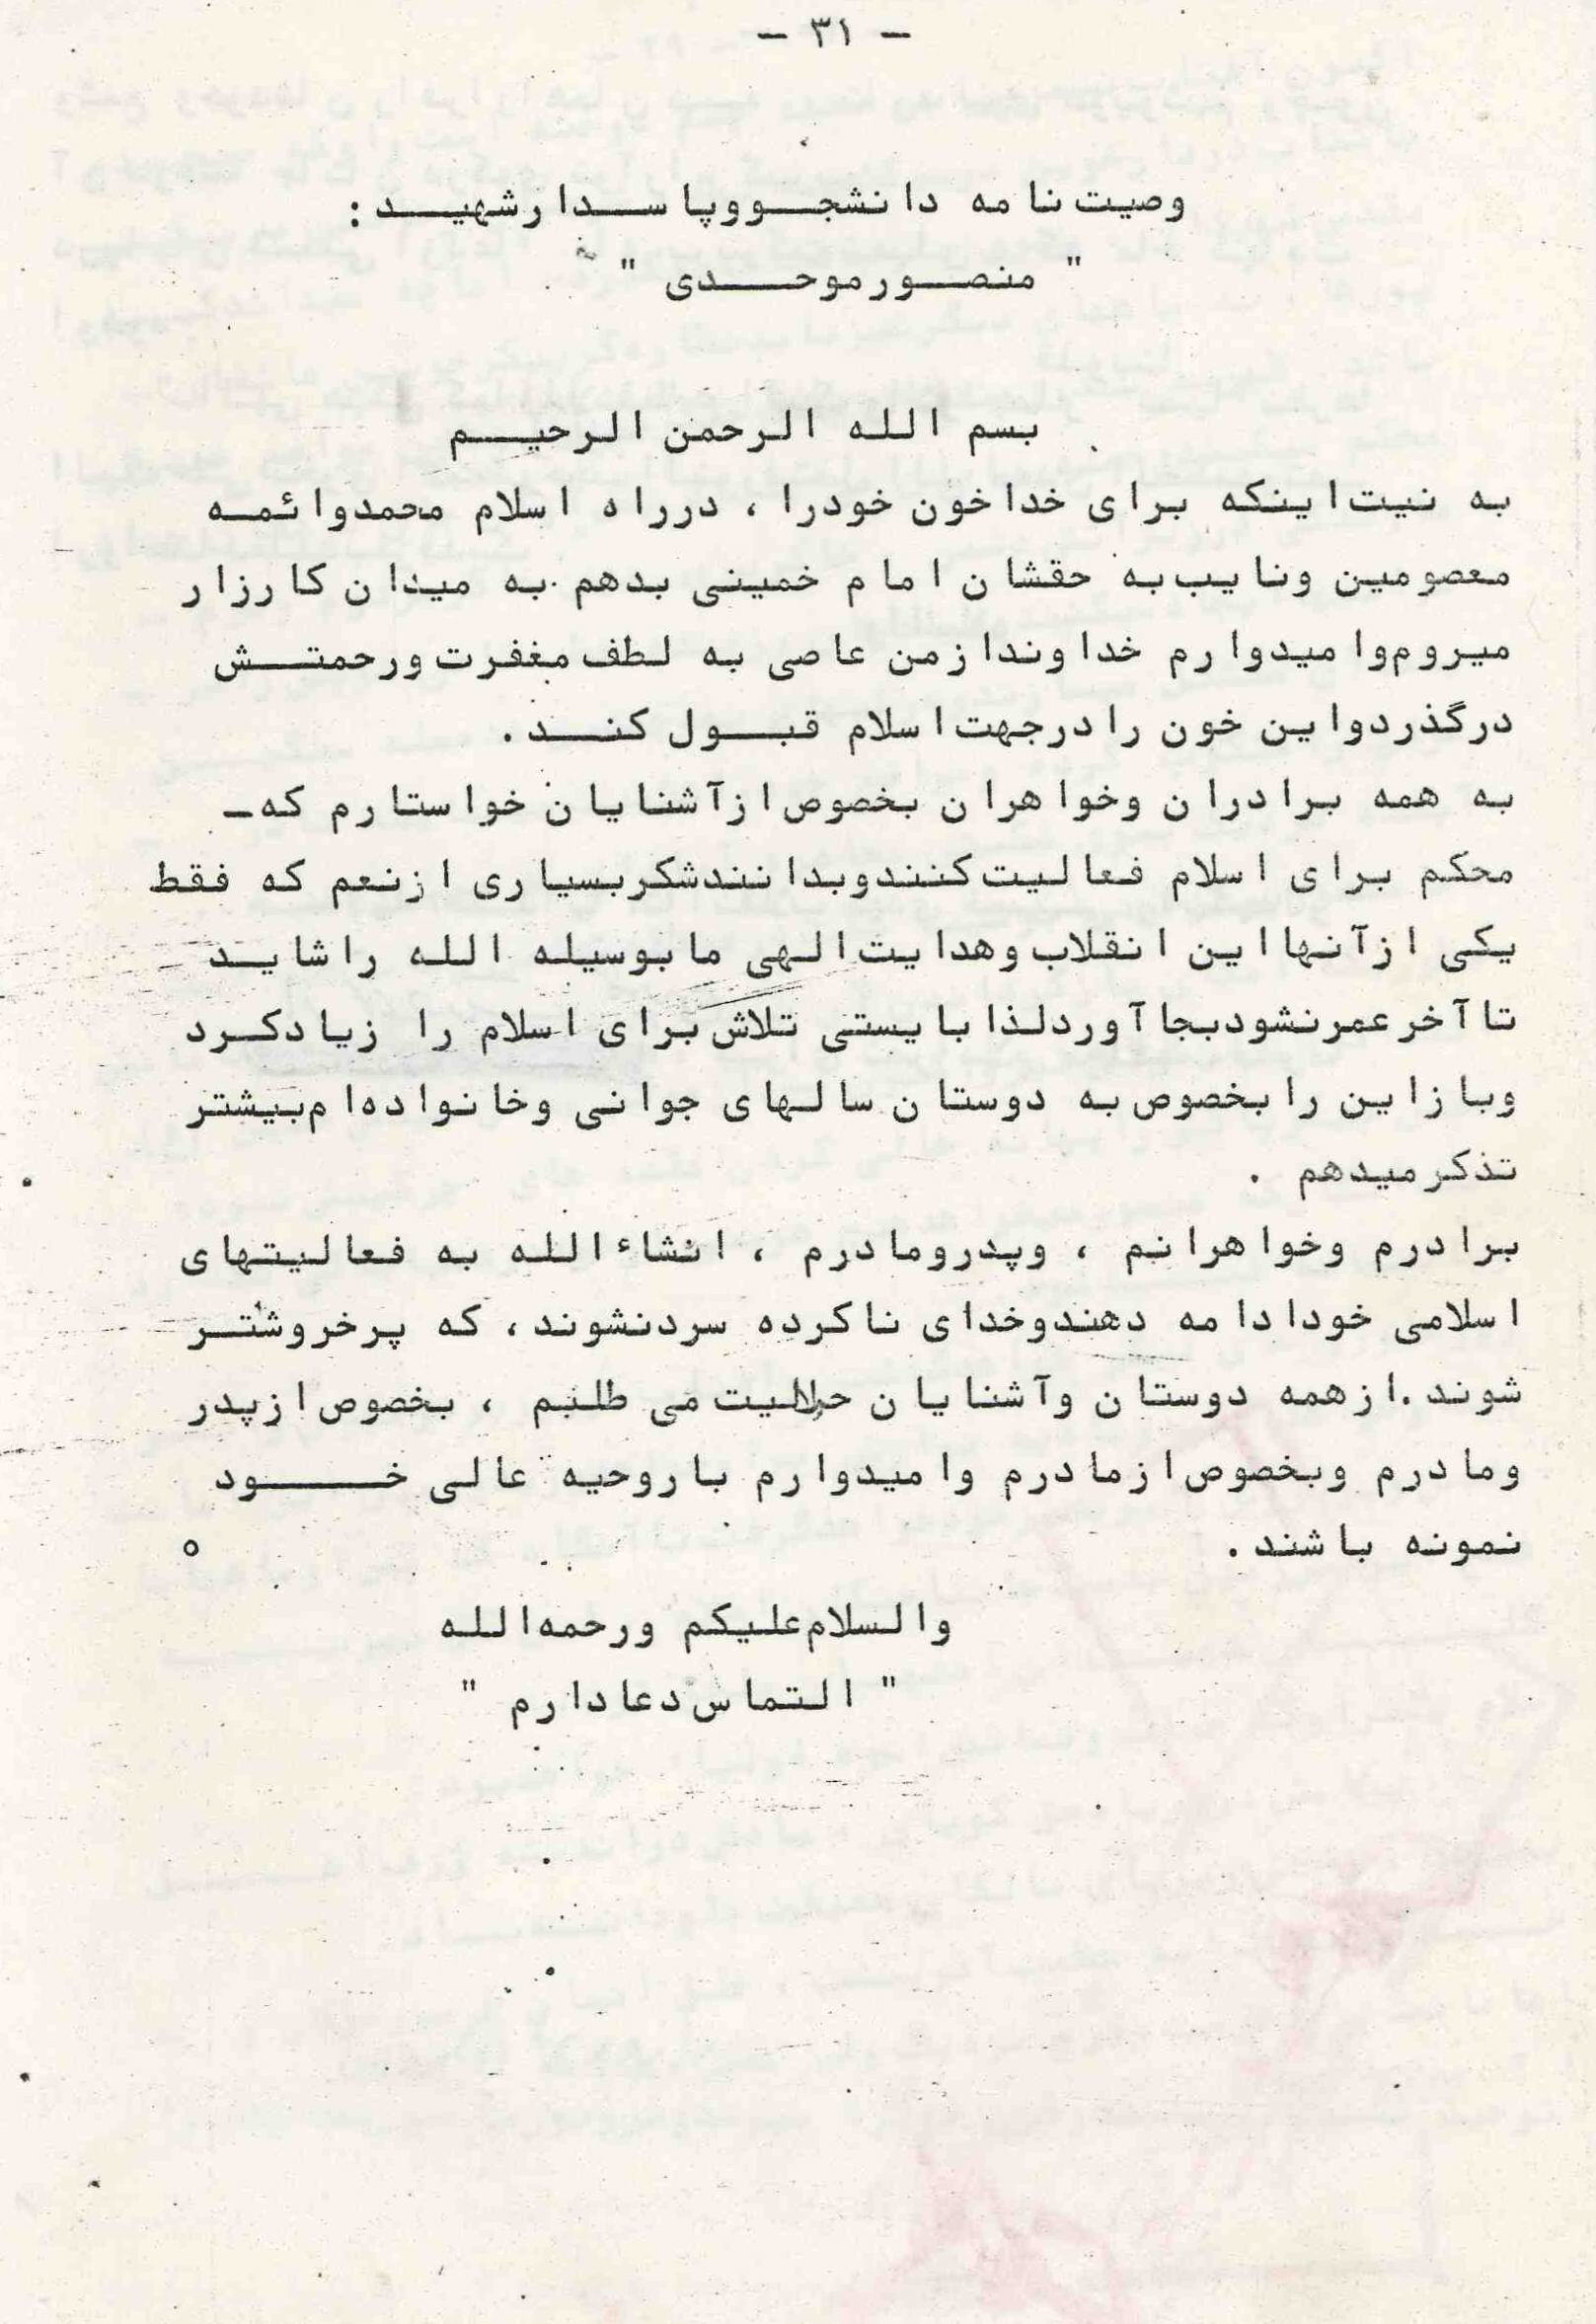 - ۳۱ -
وصیت نامه دانشجو و پاسدار شهید :
" منصور موحدی "
بسم الله الرحمن الرحیم
به نیت اینکه برای خدا خون خود را ، در راه اسلام محمد و ائمه
معصومین و نایب به حقشان امام خمینی بدهم به میدان کارزار
میروم و امیدوارم خداوند از من عاصی به لطف مغفرت و رحمتش
درگذرد و این خون را در جهت اسلام قبول کند .
به همه برادران و خواهران بخصوص از آشنایان خواستارم که -
محکم برای اسلام فعالیت کنند و بدانند شکر بسیاری از نعم که فقط
یکی از آنها این انقلاب و هدایت الهی ما بوسیله الله را شاید
تا آخر عمر نشود بجا آورد لذا بایستی تلاش برای اسلام را زیاد کرد
و باز این را بخصوص به دوستان سالهای جوانی و خانواده ام بیشتر
تذکر میدهم .
برادرم و خواهرانم ، و پدر و مادرم ، انشاء الله به فعالیتهای
اسلامی خود ادامه دهند و خدای ناکرده سرد نشوند ، که پرخروشتر
شوند . از همه دوستان و آشنایان حلالیت می طلبم ، بخصوص از پدر
و مادرم و بخصوص از مادرم و امیدوارم با روحیه عالی خود
نمونه باشند . ه
والسلام علیکم و رحمه الله
" التماس دعا دارم "